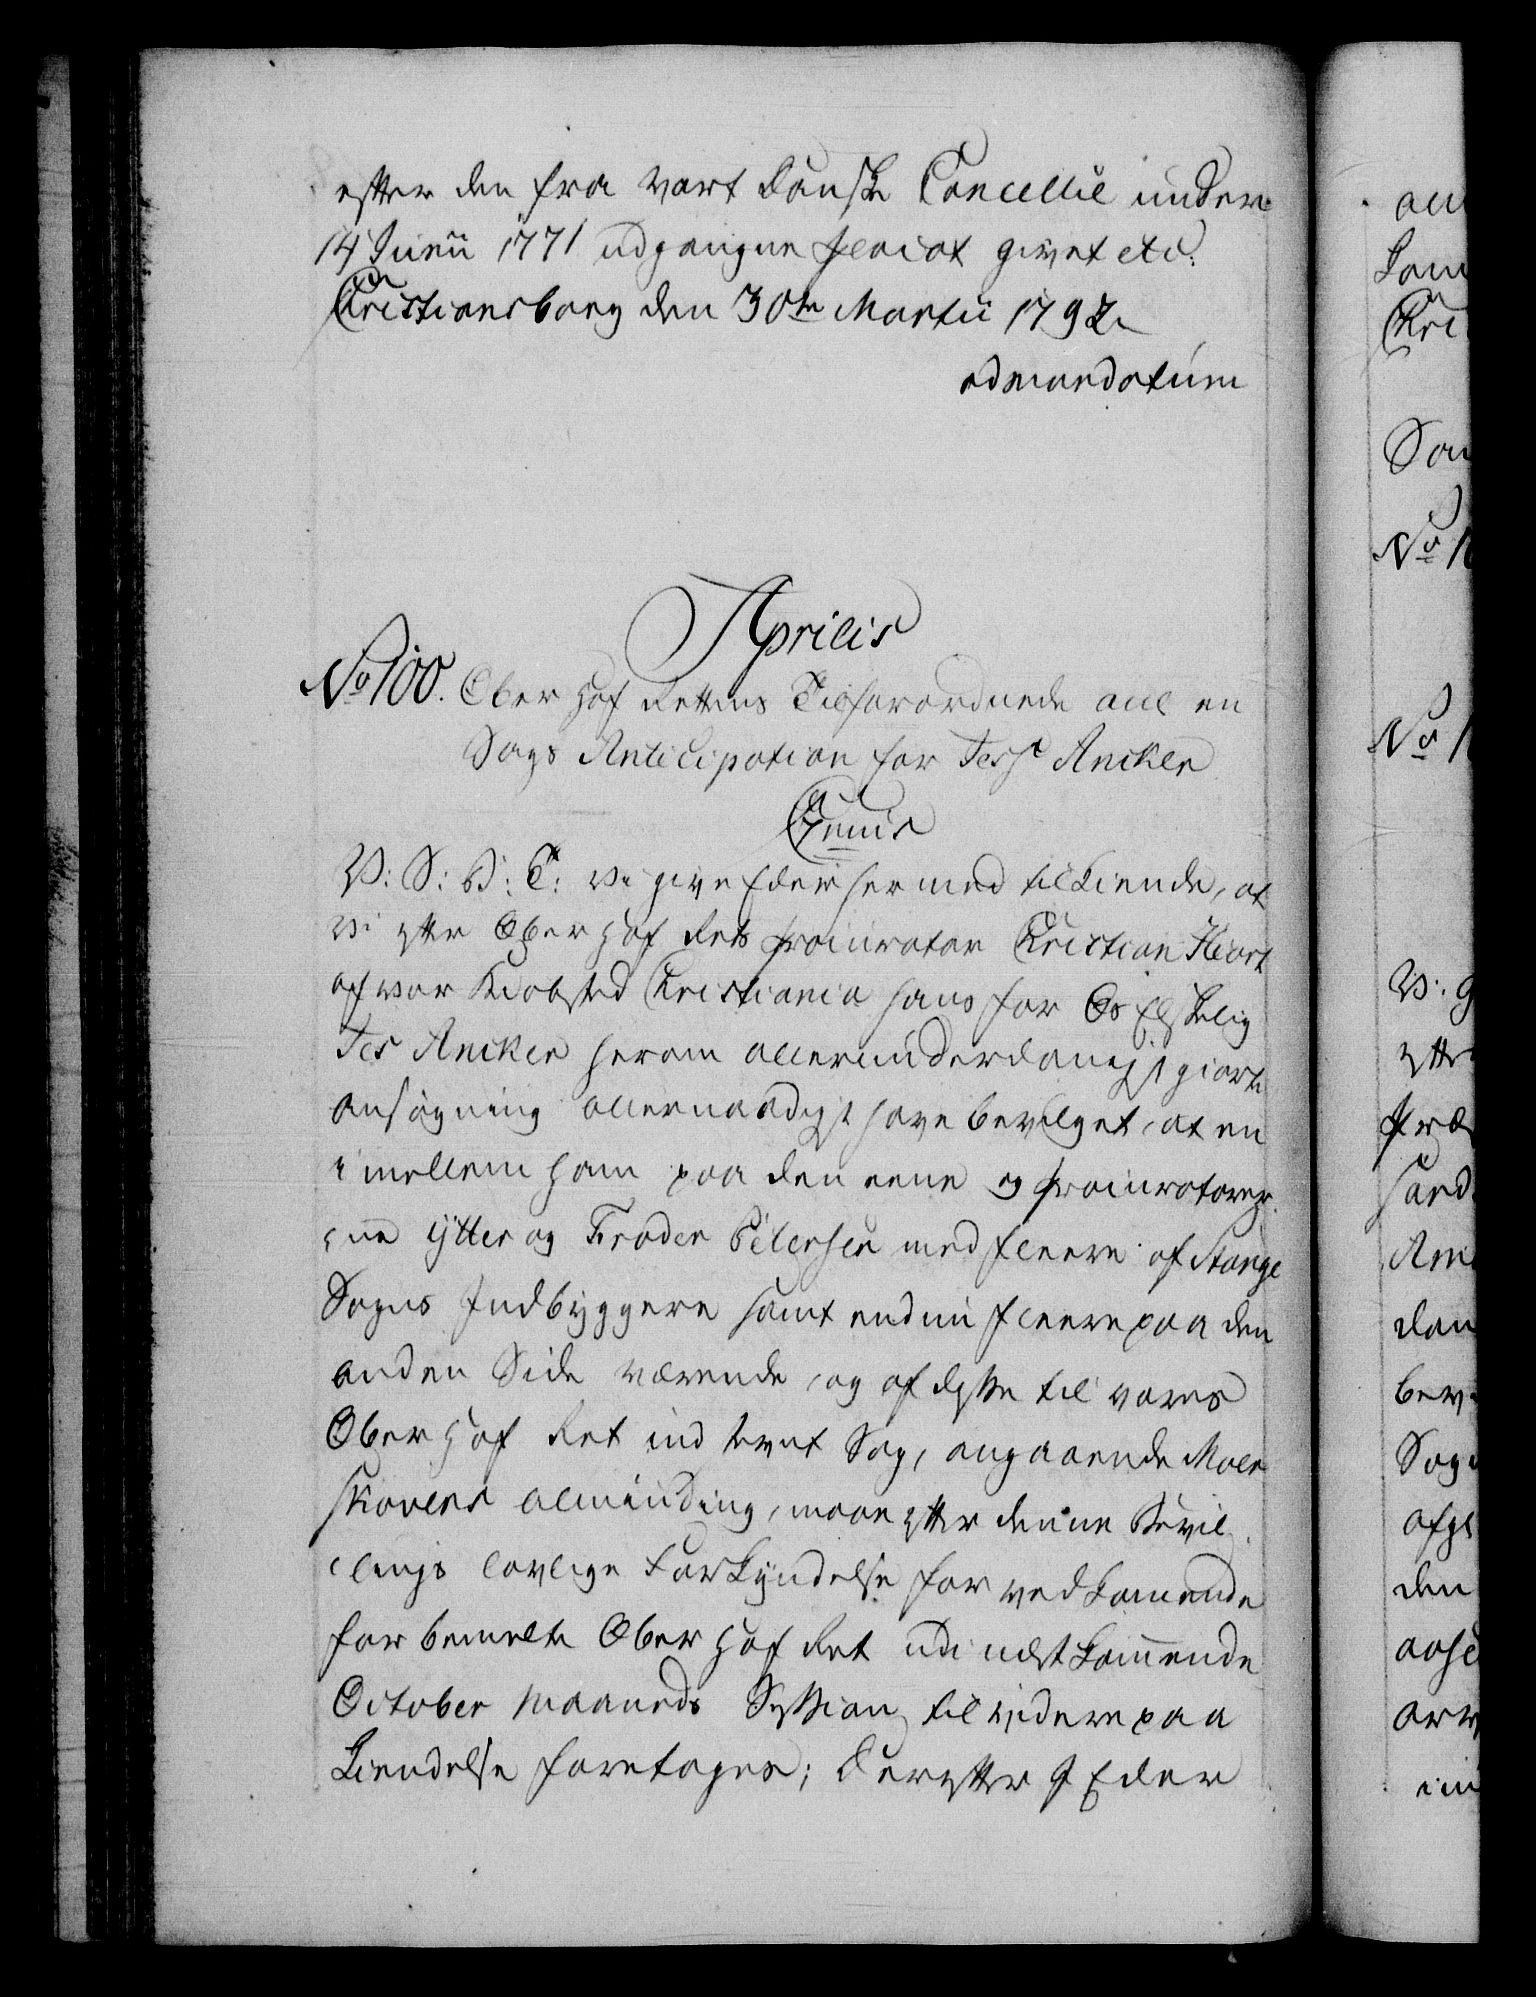 efter den fra vort Danske Cancellie under
14 Junii 1771 udgangne Placat givet etc.
Christiansborg den 30te Martii 1792
ad mandatum
Aprilis
No 100. Ober Hof Rettens Tilforordnede anl en
Sags Anticipation for Jess Ancker
C7C: V: G: V: T: Vi give Eder hermed tilkiende, at
Vi efter Ober Hof Rets Procurator Christian Hiort
af vor Kiøbsted Christiania hans for Os Elskelig
Jes Ancker herom allerunderdanigst giorte
Ansøgning allernaadigst have bevilget, at en
imellem ham paa den eene og Procuratorer-
ne Ytter og Troder Petersen med fleere af Stange
Sogns Indbyggere samt endnu fleere paa den
anden Side værende, og af disse til vores
Ober Hof Ret indstevnt Sag, angaaende Moer
skovens alminding, maae efter denne Bevil-
lings lovlige Forkyndelse for vedkommende
for bemelte Ober Hof Ret udi nestkommende
October Maaneds Session til videre paa
kiendelse foretages; Derefter I Eder